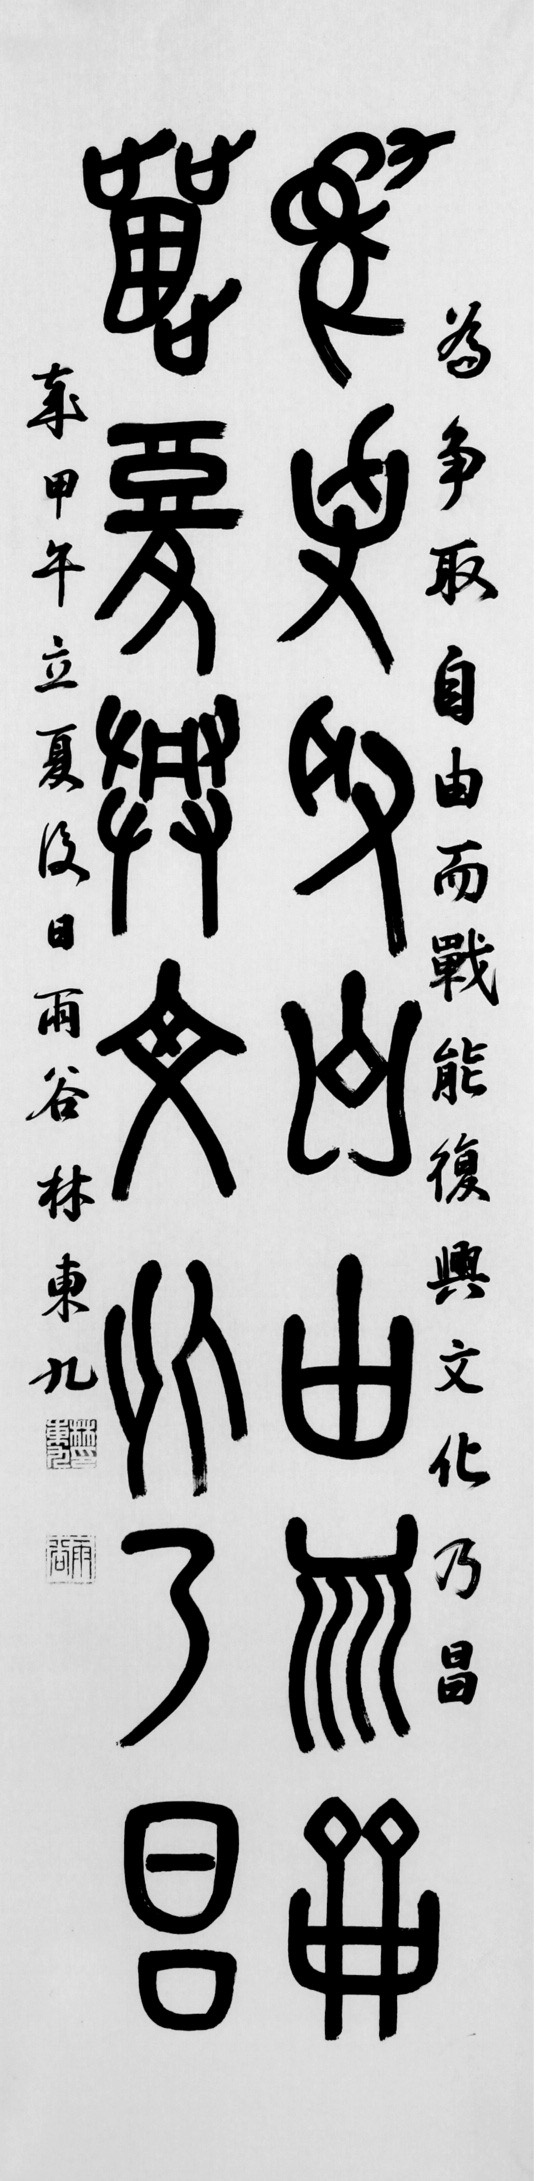 為爭取自由而戰能復興文化乃昌
為爭取自由而戰
能復興文化乃昌
歲甲午立夏後日雨谷林東九
林印東九
雨谷